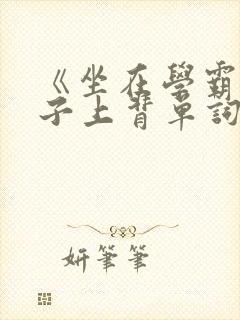 《坐在學霸
子上背單詞
妍筆筆